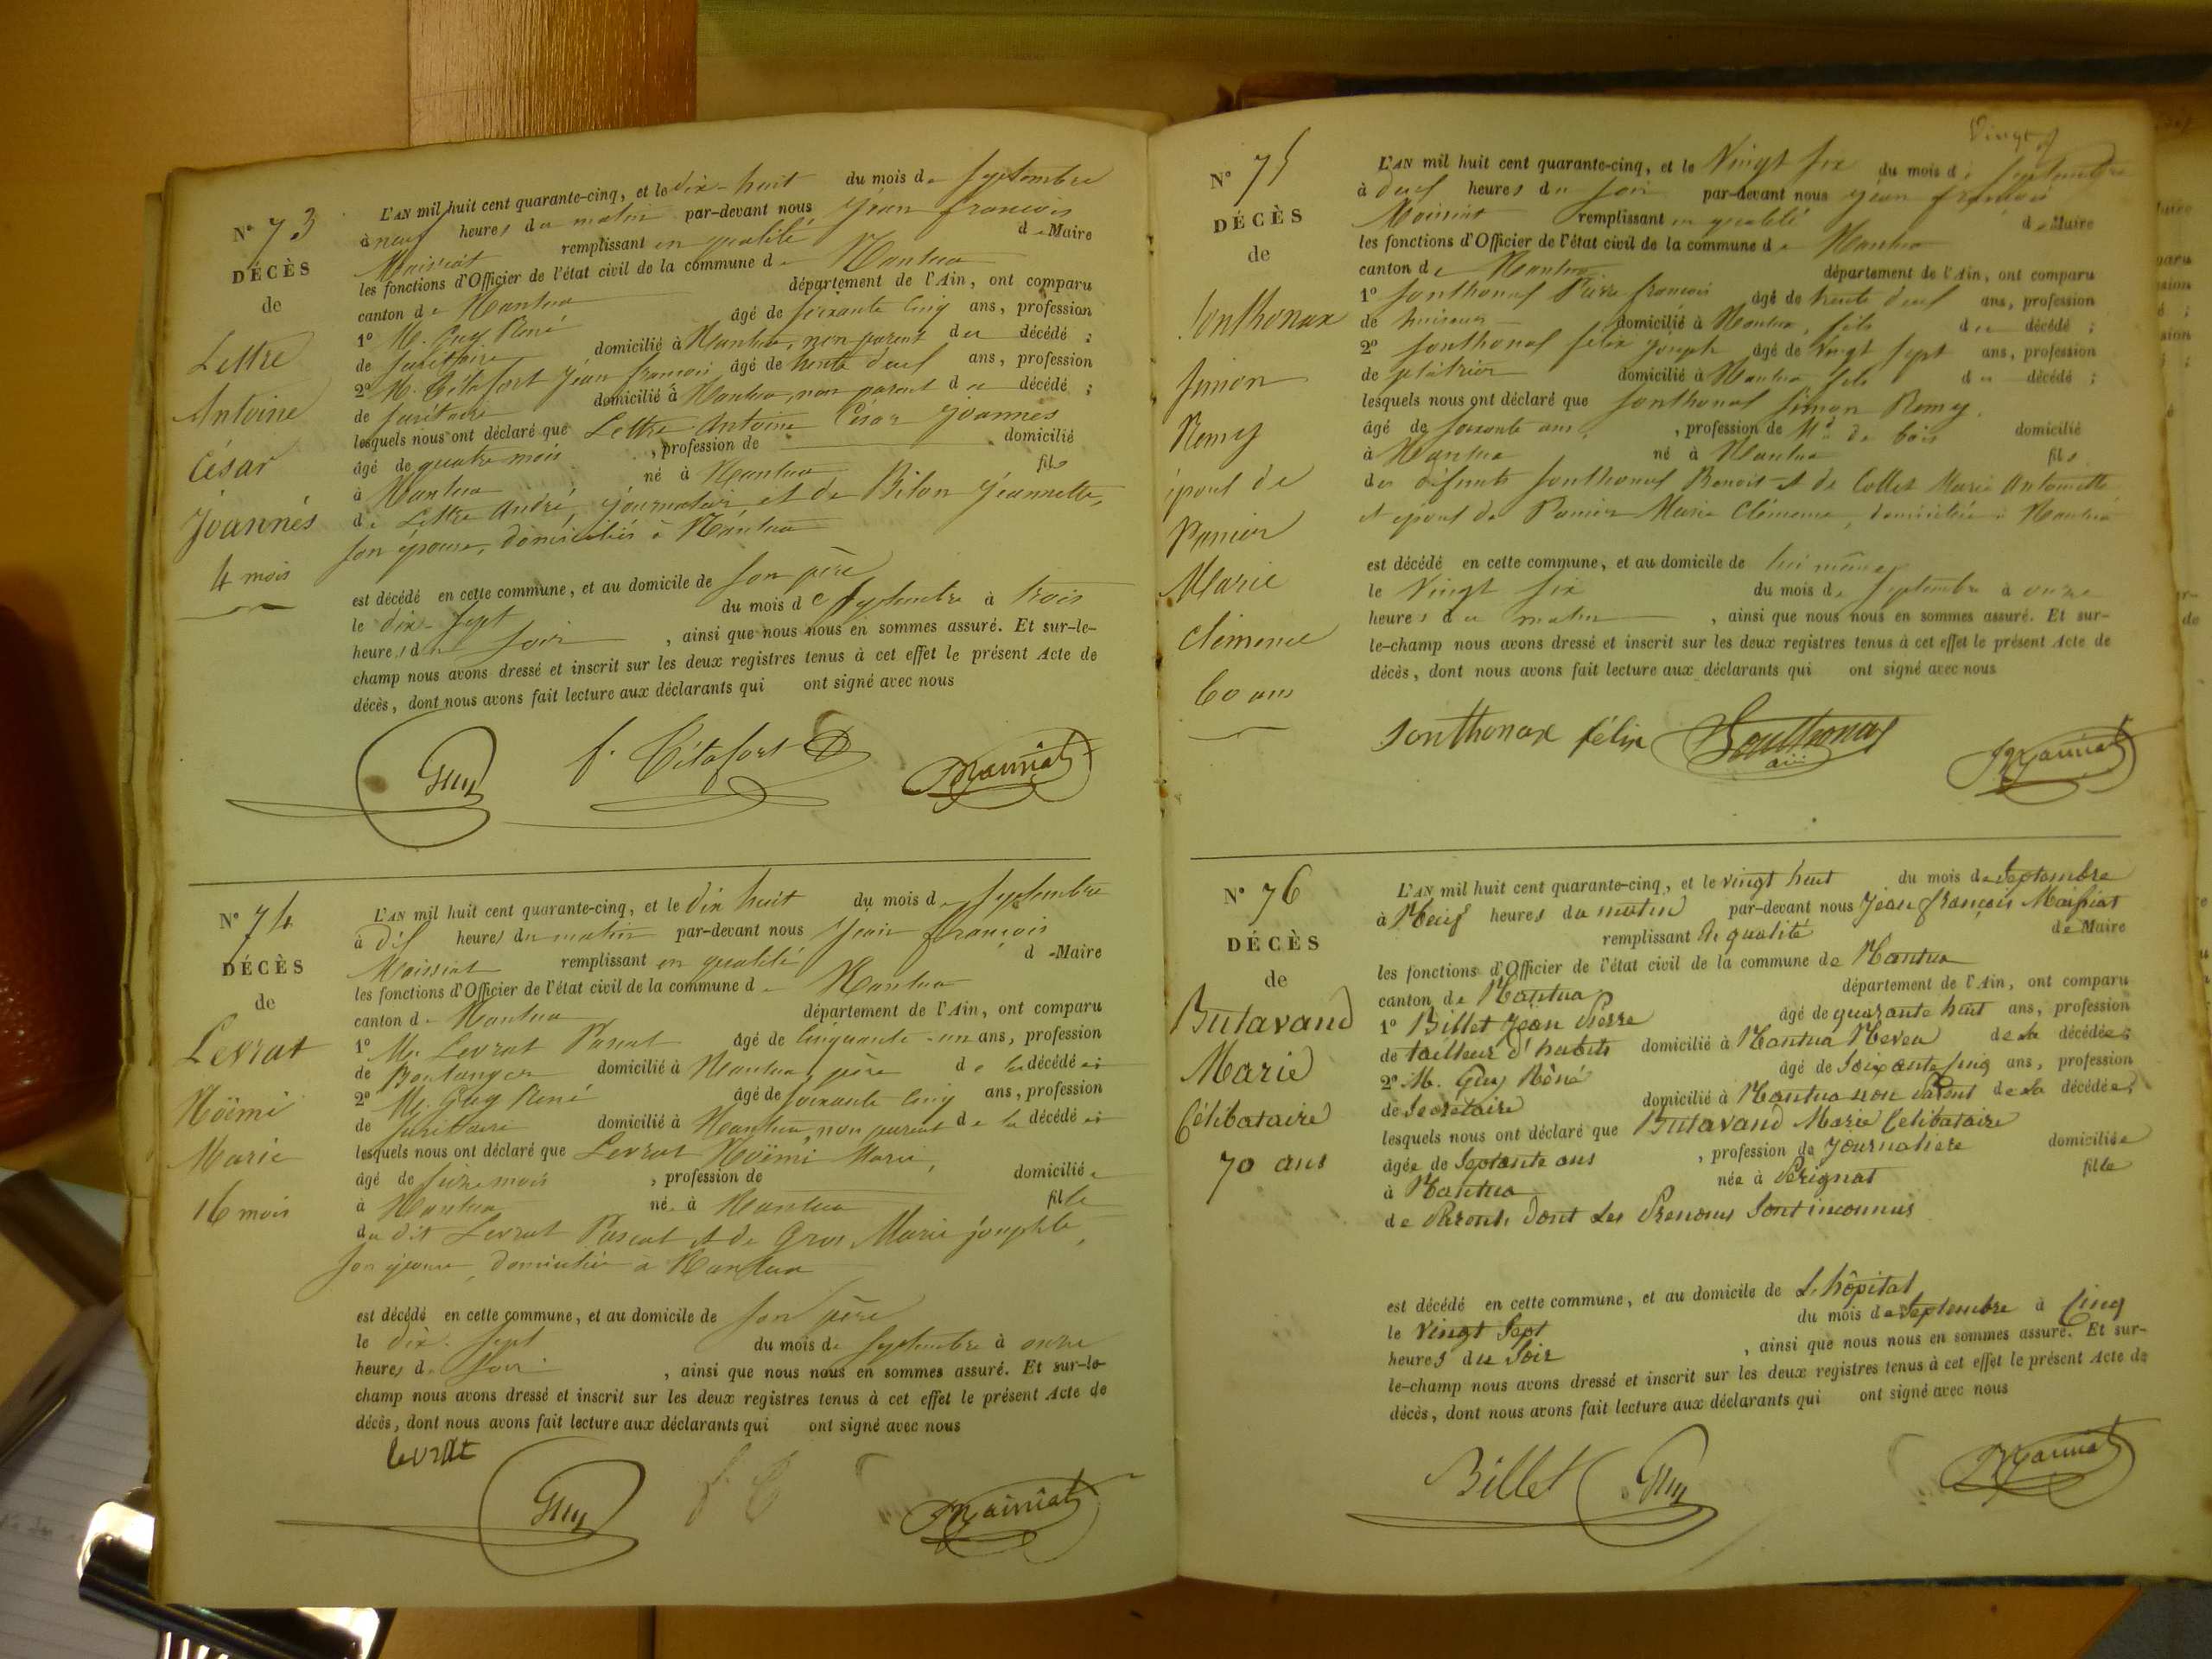 N° 73
DÉCÈS
de
Lettre
Antoine
César
Joannès
4 mois
L'AN mil huit cent quarante-cinq, et le dix-huit du mois de Septembre
à neuf heures du matin par-devant nous Jean François
Maissiat remplissant en qualité de Maire
les fonctions d'Officier de l'état civil de la commune de Nantua
canton de Nantua département de l'Ain, ont comparu
1° M. Guy René âgé de soixante cinq ans, profession
de secrétaire domicilié à Nantua, non parent du décédé ;
2° M. Tétafort Jean françois âgé de trente deux ans, profession
de secrétaire domicilié à Nantua, non parent du décédé ;
lesquels nous ont déclaré que Lettre Antoine César Joannès
âgé de quatre mois , profession de domicilié
à Nantua né à Nantua fils
de Lettre André, journalier, et de Bilon Jeannette,
son épouse, domiciliés à Nantua
est décédé en cette commune, et au domicile de son père
le dix-sept du mois de Septembre à trois
heures du soir , ainsi que nous nous en sommes assuré. Et sur-le-
champ nous avons dressé et inscrit sur les deux registres tenus à cet effet le présent Acte de
décès, dont nous avons fait lecture aux déclarants qui ont signé avec nous
Guy f. Tétafort Maissiat
N° 74
DÉCÈS
de
Levrat
Noëmi
Marie
16 mois
L'AN mil huit cent quarante-cinq, et le dix huit du mois de Septembre
à dix heures du matin par-devant nous Jean François
Maissiat remplissant en qualité de Maire
les fonctions d'Officier de l'état civil de la commune de Nantua
canton de Nantua département de l'Ain, ont comparu
1° Mr. Levrat Pascal âgé de cinquante-un ans, profession
de Boulanger domicilié à Nantua, père de la décédée
2° Mr. Guy René âgé de soixante cinq ans, profession
de secrétaire domicilié à Nantua, non parent de la décédée
lesquels nous ont déclaré que Levrat Noëmi Marie,
âgé de seize mois , profession de domiciliée
à Nantua né à Nantua fille
du dit Levrat Pascal et de Gros Marie josephte,
son épouse, domiciliée à Nantua
est décédé en cette commune, et au domicile de son père
le dix-sept du mois de Septembre à onze
heures du soir , ainsi que nous nous en sommes assuré. Et sur-le-
champ nous avons dressé et inscrit sur les deux registres tenus à cet effet le présent Acte de
décès, dont nous avons fait lecture aux déclarants qui ont signé avec nous
levrat
Guy Maissiat
N° 75
DÉCÈS
de
Sonthonax
Simon
Remy
époux de
Panier
Marie
Clémence
60 ans
L'AN mil huit cent quarante-cinq, et le Vingt six du mois de Septembre
à deux heures du soir par-devant nous Jean françois
Maissiat remplissant en qualité de Maire
les fonctions d'Officier de l'état civil de la commune de Nantua
canton de Nantua département de l'Ain, ont comparu
1° Sonthonax Pierre françois âgé de trente deux ans, profession
de domicilié à Nantua, fils du décédé ;
2° Sonthonax félix joseph âgé de vingt sept ans, profession
de plâtrier domicilié à Nantua, fils du décédé ;
lesquels nous ont déclaré que Sonthonax Simon Remy,
âgé de soixante ans, , profession de Md de bois domicilié
à Nantua né à Nantua fils
des défunts Sonthonax Benoit et de Collet Marie Antoinette
et époux de Panier Marie Clémence, domiciliée à Nantua
est décédé en cette commune, et au domicile de lui même
le Vingt six du mois de Septembre à onze
heures du matin , ainsi que nous nous en sommes assuré. Et sur-
le-champ nous avons dressé et inscrit sur les deux registres tenus à cet effet le présent Acte de
décès, dont nous avons fait lecture aux déclarants qui ont signé avec nous
Sonthonax félix Sonthonax Maissiat
N° 76
DÉCÈS
de
Butavand
Marie
Célibataire
70 ans
L'AN mil huit cent quarante-cinq, et le vingt huit du mois de Septembre
à Neuf heures du matin par-devant nous Jean François Maissiat
remplissant en qualité de Maire
les fonctions d'Officier de l'état civil de la commune de Nantua
canton de Nantua département de l'Ain, ont comparu
1° Billet Jean Pierre âgé de quarante huit ans, profession
de tailleur d'habits domicilié à Nantua Neveu de la décédée ;
2° M. Guy Réné âgé de Soixante Cinq ans, profession
de Secrétaire domicilié à Nantua non Parent de la décédée ;
lesquels nous ont déclaré que Butavand Marie Célibataire
âgée de Septante ans , profession de Journalière domiciliée
à Nantua née à Pérignat fille
de Parents dont Les Prenoms Sont inconnus
est décédé en cette commune, et au domicile de L'hôpital
le vingt Sept du mois de Septembre à Cinq
heures du Soir , ainsi que nous nous en sommes assuré. Et sur-
le-champ nous avons dressé et inscrit sur les deux registres tenus à cet effet le présent Acte de
décès, dont nous avons fait lecture aux déclarants qui ont signé avec nous
Billet Guy Maissiat